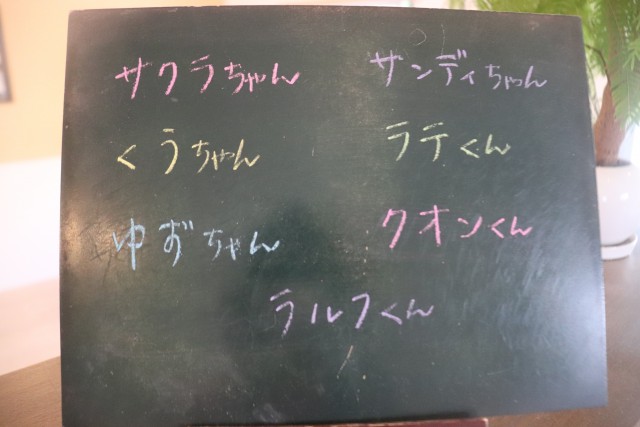 サクラちゃん サンディちゃん
くうちゃん ラテくん
ゆずちゃん クオンくん
ラルフくん